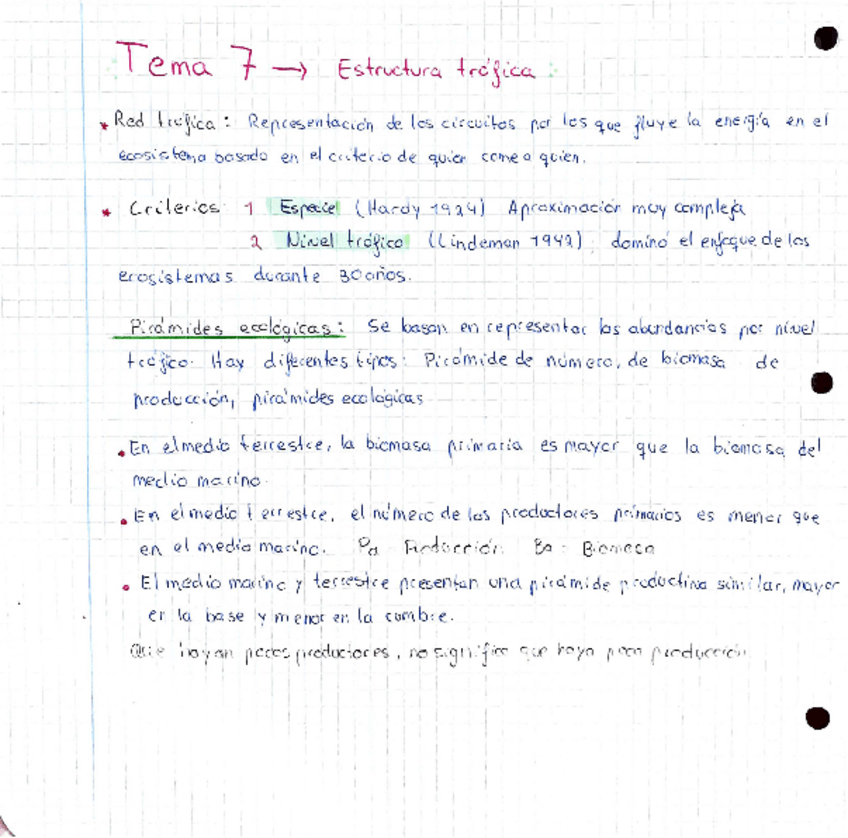 Tema 7 → Estructura trófica:
* Red trófica: Representación de los circuitos por los que fluye la energía en el
ecosistema basado en el criterio de quien come a quien.
* Criterios 1 Especie (Hardy 1924) Aproximación muy compleja
2 Nivel trófico (Lindeman 1942) dominó el enfoque de los
ecosistemas durante 30 años.
Pirámides ecológicas: Se basan en representar las abundancias por nivel
trófico. Hay diferentes tipos: Pirámide de número, de biomasa de
producción, pirámides ecológicas
• En el medio terrestre, la biomasa primaria es mayor que la biomasa del
medio marino.
• En el medio terrestre, el número de los productores primarios es menor que
en el medio marino. Pa Producción Ba: Biomasa
• El medio marino y terrestre presentan una pirámide productiva similar, mayor
en la base y menor en la cumbre.
Que hayan pocos productores, no significa que haya poca producción